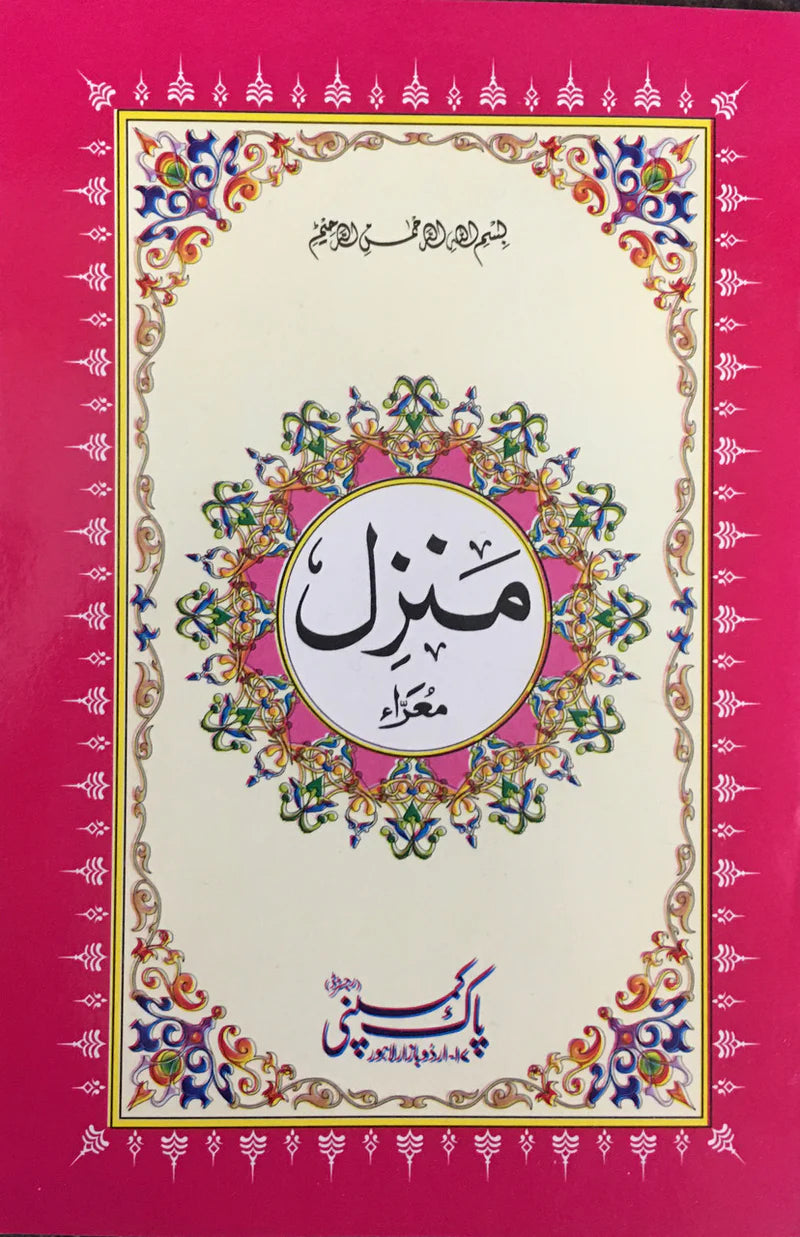 بِسْمِ اللهِ الرَّحْمٰنِ الرَّحِيْمِ
مَنْزِل
مُعَرَّاء
پاک کمپنی (رجسٹرڈ)
۱۷-اردو بازار لاہور